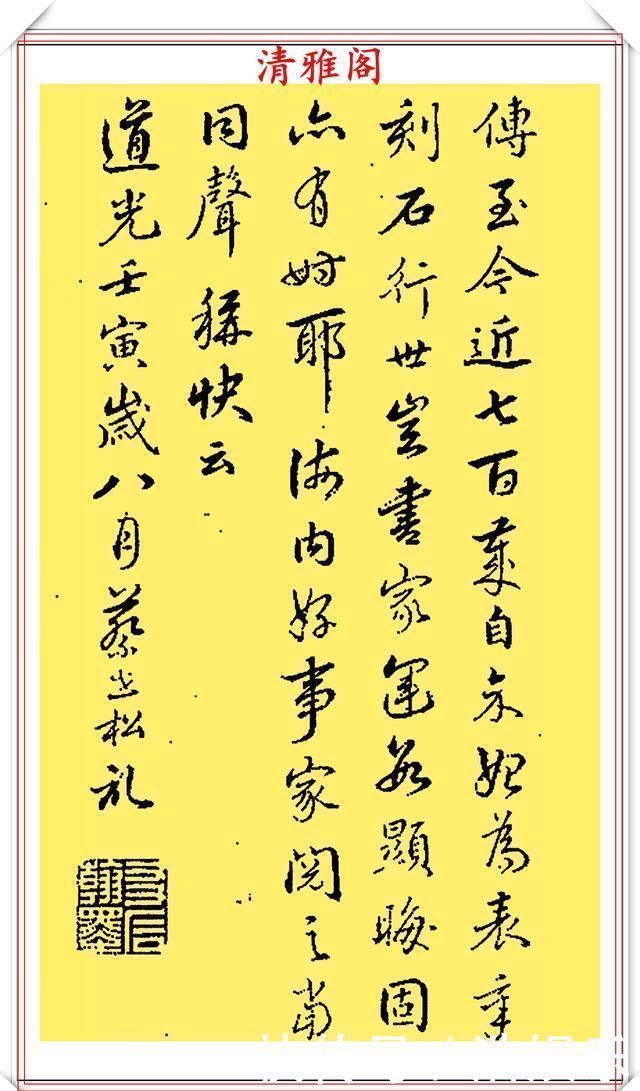 清雅阁
傳至今近七百載自余始為表章
刻石行世豈書家運數顯晦固
亦有時耶海内好事家閱之當
同聲稱快云
道光壬寅歲八月蔡世松記
快传号